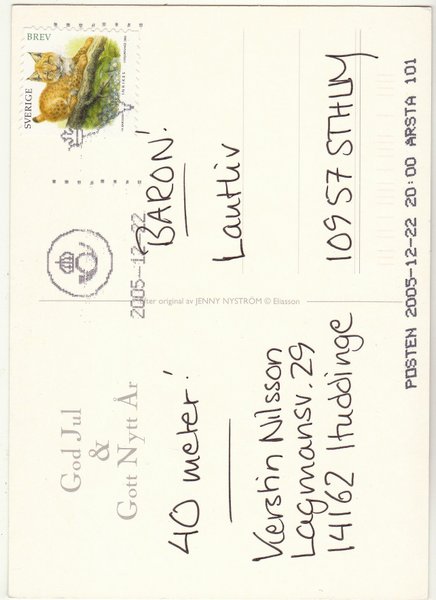 God Jul
&
Gott Nytt År
40 meter!
Kerstin Nilsson
Lagmansv. 29
14162 Huddinge
efter original av JENNY NYSTRÖM © Eliasson
SVERIGE
BREV
2005-12-22
"BARON"
Lantliv
109 57 STHLM
POSTEN 2005-12-22 20:00 ÅRSTA 101